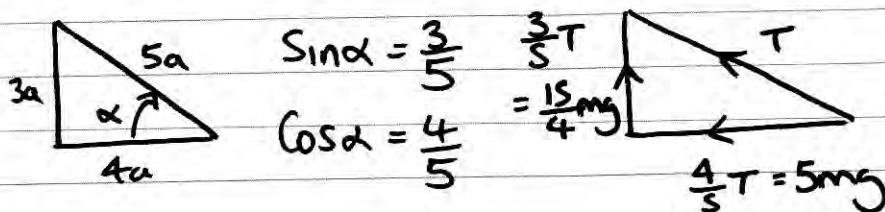 3a
5a
α
4a
Sinα = 3/5
Cosα = 4/5
3/5 T
= 15/4 mg
T
4/5 T = 5mg